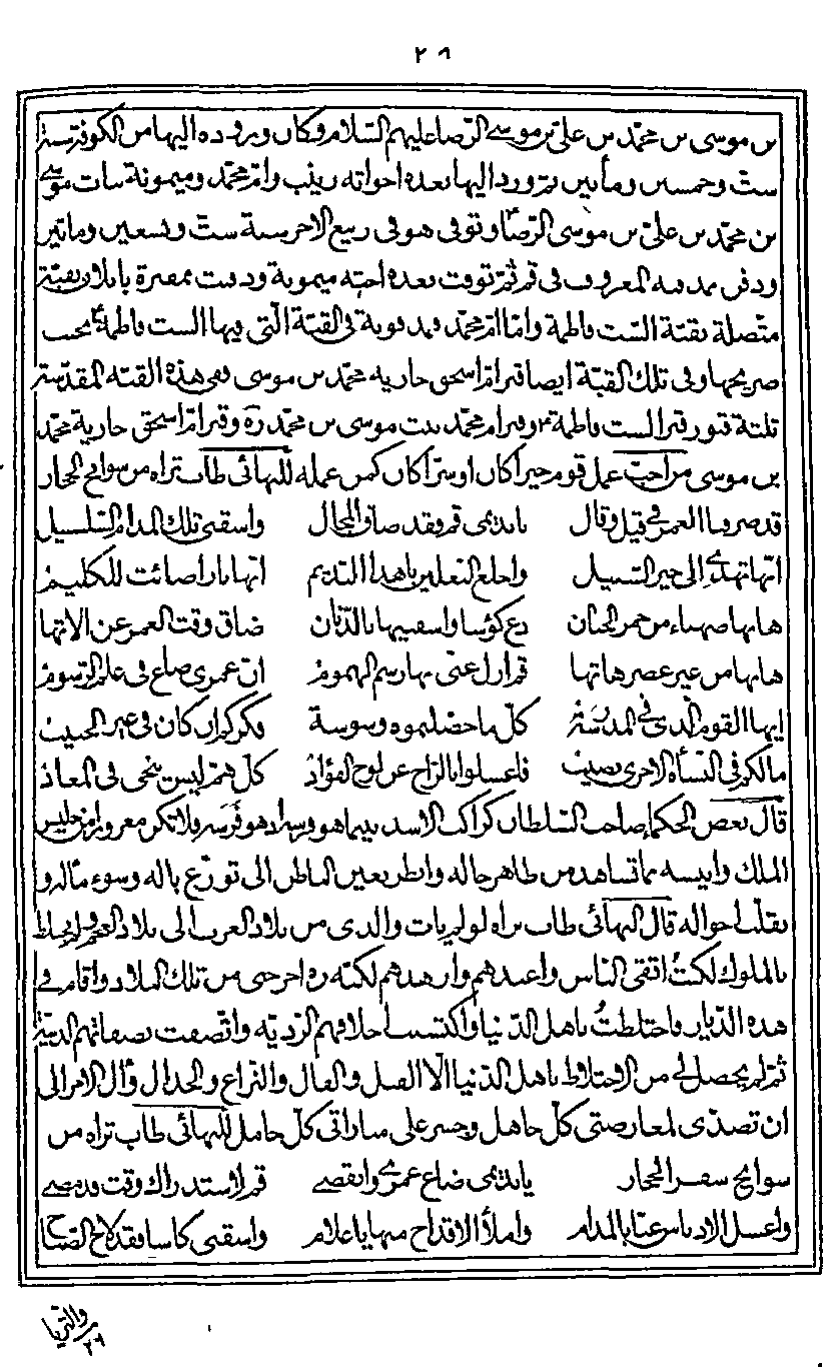 ٢٨
بن موسى بن محمّد بن علي بن موسى الرّضا عليهم السّلام وكان وروده اليها من الكوفة سنة
ستّ وخمسين ومأتين ثمّ ورد اليها بعده اخواته زينب وامّ محمّد وميمونة بنات موسى
بن محمّد بن عليّ بن موسى الرّضا وتوفى هو في ربيع الاخر سنة ستّ وتسعين وماتين
ودفن بمدفنه المعروف في قم ثمّ توفت بعده اخته ميمونة ودفنت بمقبرة بابلان بقبّة
متّصلة بقبّة السّت فاطمة وامّا امّ محمّد فمدفونة في القبّة الّتي فيها الست فاطمة بجنب
ضريحها وفي تلك القبّة ايضا قبر امّ اسحق جارية محمّد بن موسى ففي هذه القبّة المقدّسة
ثلثة قبور قبر الست فاطمة وقبر امّ محمّد بنت موسى بن محمّد ره وقبر امّ اسحق جارية محمّد
بن موسى من احبّ عمل قوم خيرا كان او شرّا كان كمن عمله للبهائى طاب ثراه من سوانح الحجاز
قد صرفنا العمر في قيل وقال يا نديمى قم فقد ضاق المجال واسقنى تلك المدام السّلسبيل
انّها تهدى الى خير السّبيل واخلع النّعلين يا هذا النّديم انّها نار اضائت للكليم
هاتها صهباء من خمر الجنان دع كؤسا واسقنيها بالدّنان ضاق وقت العمر عن الاتها
هاتها من غير عصر هاتها قم ازل عنّى بها رسم الهموم انّ عمرى ضاع في علم الرّسوم
ايّها القوم الّذى في المدرسة كلّ ما حصّلتموه وسوسة فكركم ان كان في غير الحبيب
مالكم في النّشأة الاخرى نصيب فاغسلوا بالرّاح عن لوح الفؤاد كلّ همّ ليس ينجى في المعاد
قال بعض الحكماء صاحب السّلطان كراكب الاسد بينما هو فرسه اذ هو فرسه فلا تكن مغرورا من جليس
الملك وانيسه بما تشاهد من ظاهر حاله وانظر بعين الباطن الى توزّع باله وسوء مأله و
تقلّب احواله قال البهائى طاب ثراه لو لم يأت والدى من بلاد العرب الى بلاد العجم ولم يختلط
بالملوك لكنتُ اتقى النّاس واعبدهم وازهدهم لكنّه ره اخرجنى من تلك البلاد واقام في
هذه الدّيار فاختلطتُ باهل الدّنيا واكتسبت اخلاقهم الرّديّه واتّصفت بصفاتهم الدنيّة
ثمّ لم يحصل لى من الاختلاط باهل الدّنيا الّا القيل والقال والنّزاع والجدال وآل الامر الى
ان تصدّى لمعارضتى كلّ جاهل وجسر على مباراتى كلّ خامل للبهائى طاب ثراه من
سوانح سفر الحجاز يا نديمى ضاع عمرى وانقضى قم لاستدراك وقت قد مضى
واغسل الادناس عنّا بالمدام واملأ الاقداح منها يا غلام واسقنى كاسا فقد لاح الصّباح
والثريا